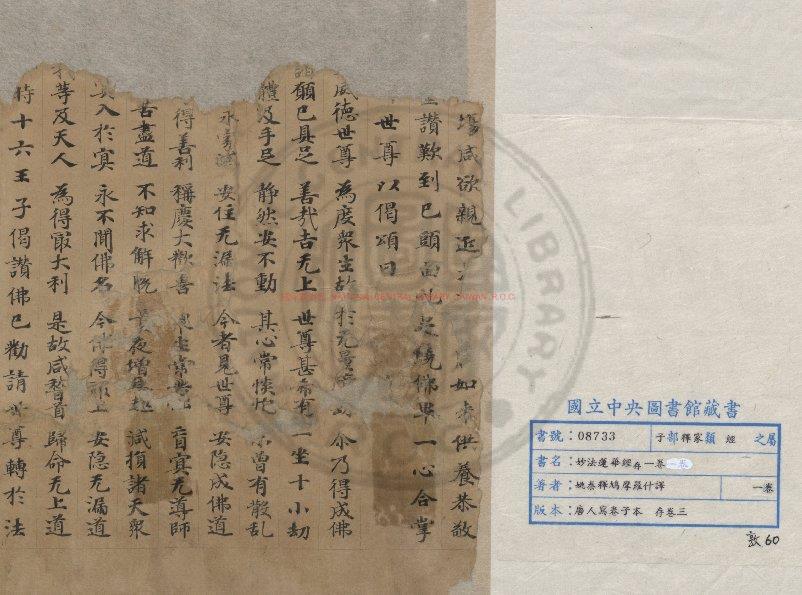 場咸欲親近 如来供養恭敬
讃歎到已頭面 足繞佛畢一心合掌
世尊以偈頌曰
威德世尊 為度衆生故 於无量 尒乃得成佛
願已具足 善哉吉无上 世尊甚希有 一坐十小劫
體及手足 静然安不動 其心常惔怕 未曾有散乱
永 安住无漏法 今者見世尊 安隐成佛道
得善利 稱慶大歡喜 衆生常 盲冥无導師
苦盡道 不知求解脱 長夜增 減損諸天衆
入於冥 永不聞佛名 今佛得 上 安隐无漏道
我等及天人 為得最大利 是故咸稽首 歸命无上道
時十六王子偈讃佛已勸請世尊轉於法
國立中央圖書館藏書
書號：08733 子部釋家類 經 之屬
書名：妙法蓮華經存一卷
著者：姚秦釋鳩摩羅什譯 一卷
版本：唐人寫卷子本 存卷三
敦 60